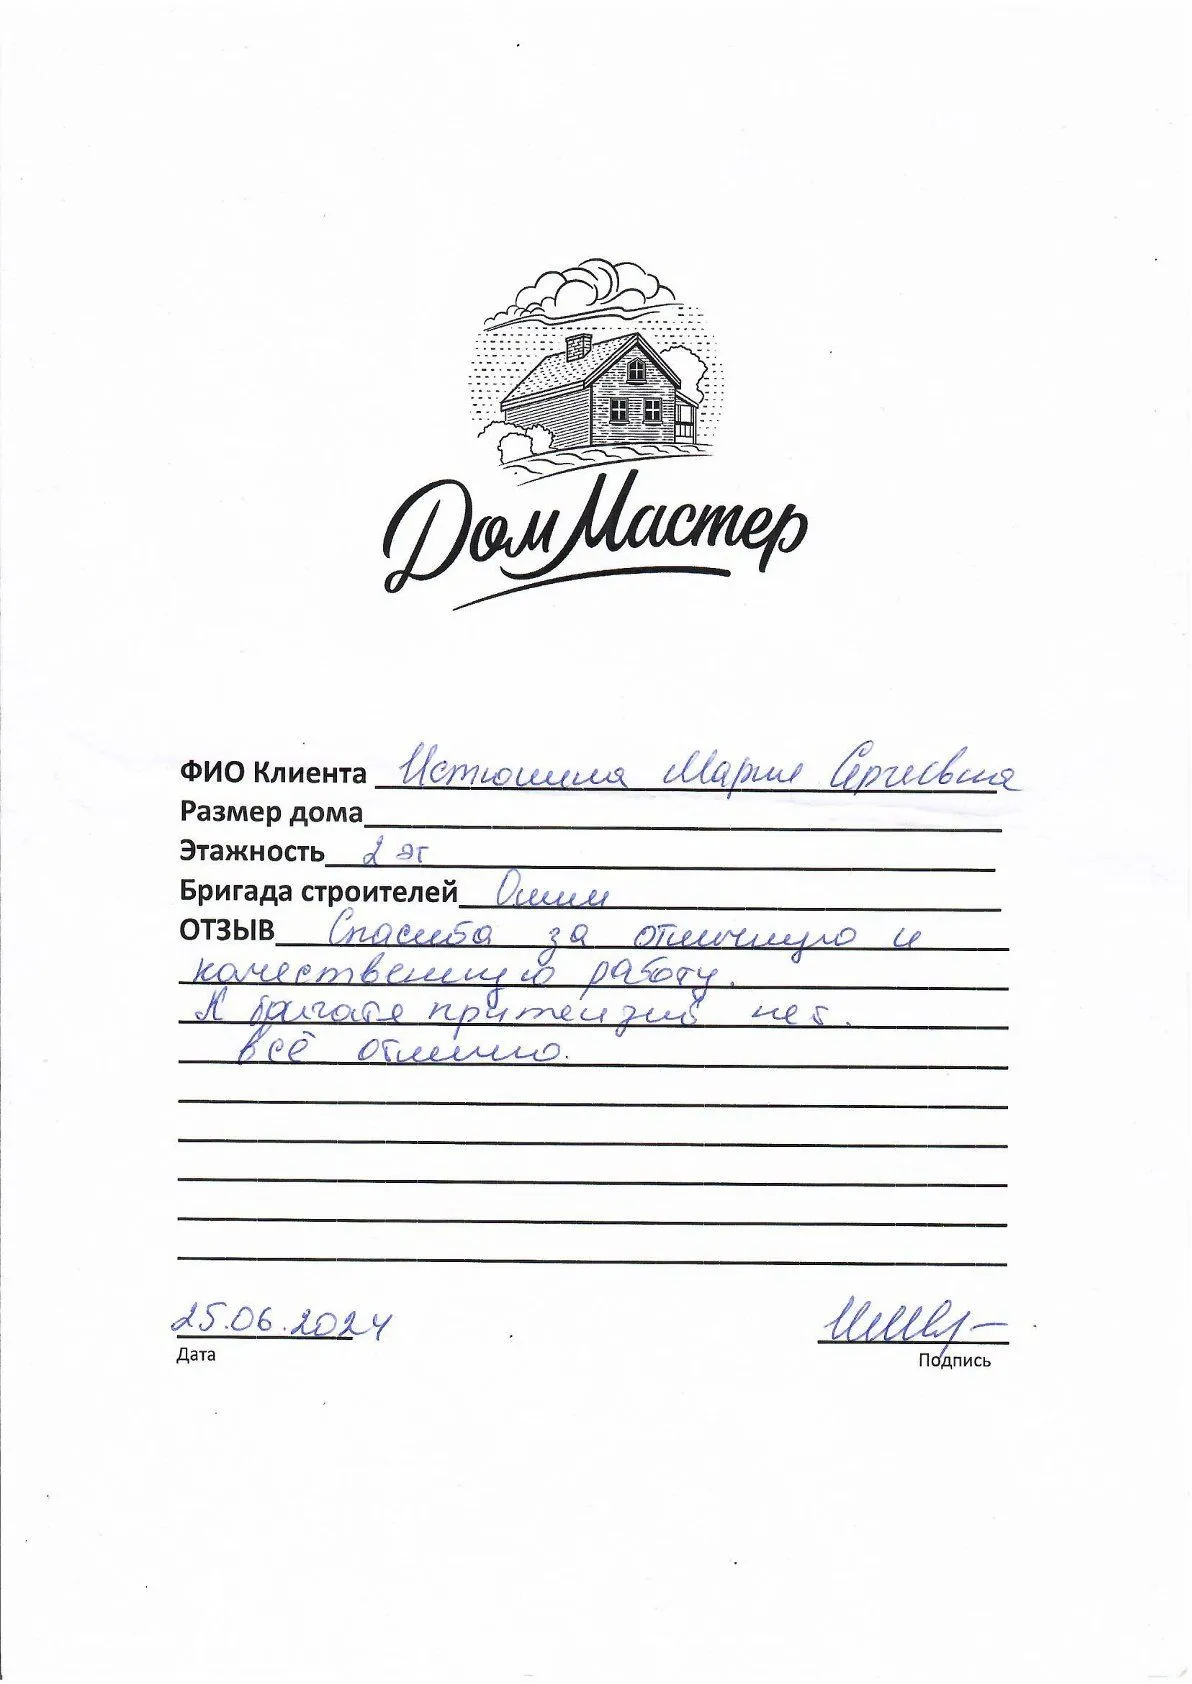 ДомМастер
ФИО Клиента Истюшина Мария Сергеевна
Размер дома
Этажность 2 эт
Бригада строителей
ОТЗЫВ Спасиба за отличную и
качественную работу.
К бригате притензий нет.
всё отлично.
25.06.2024
Дата
Подпись